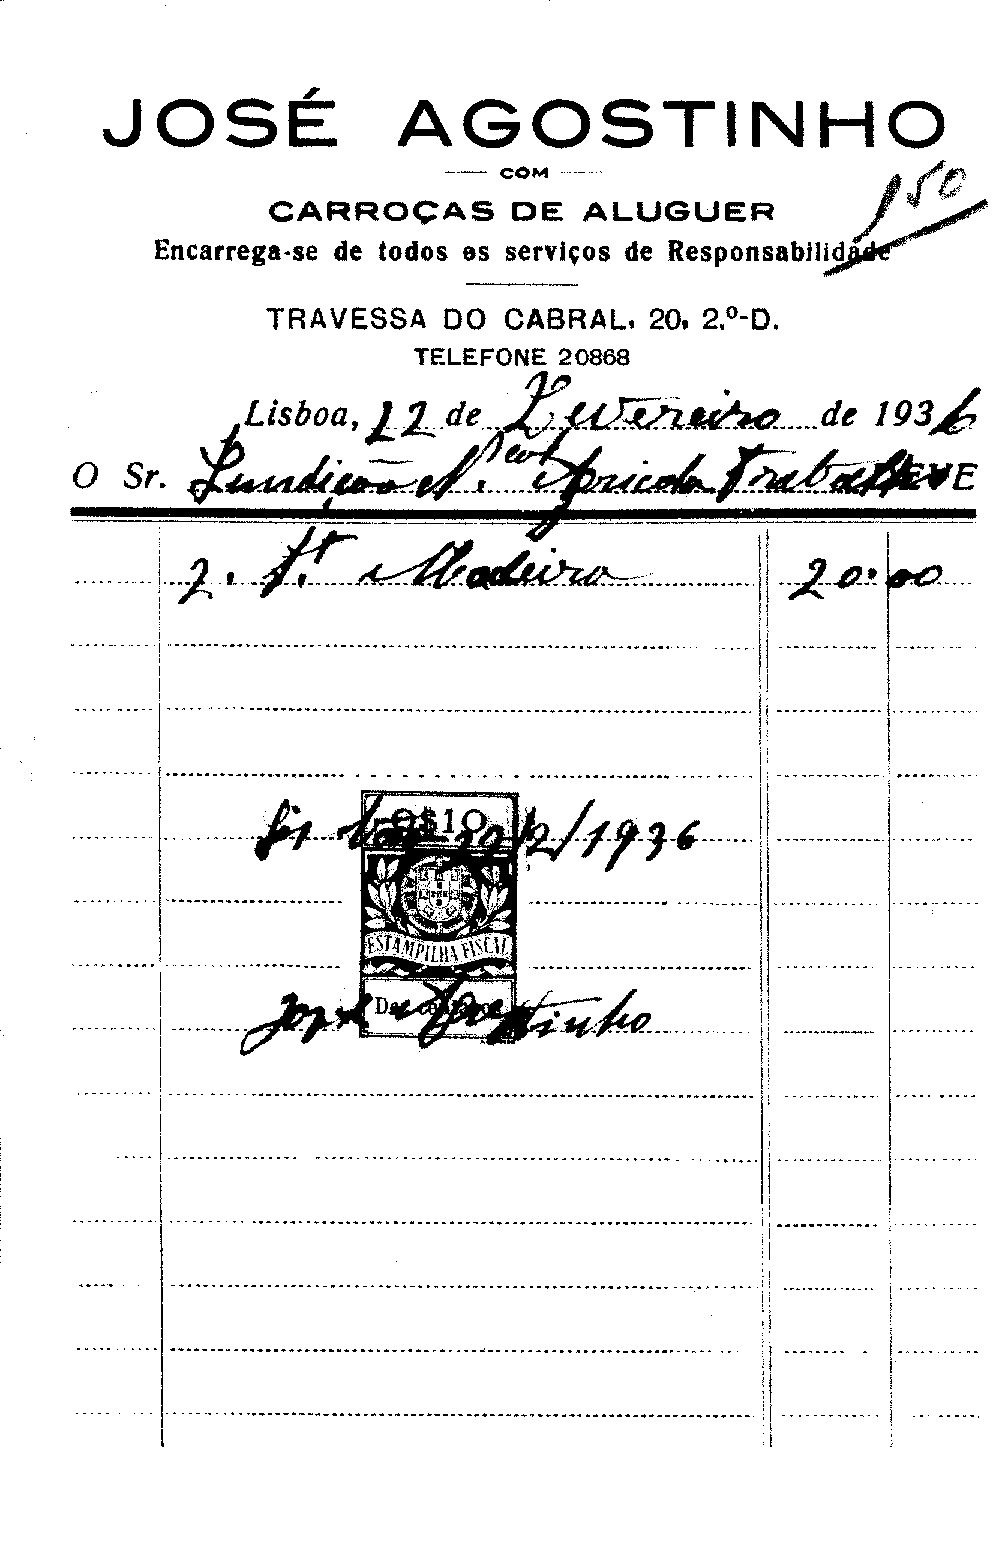 JOSÉ AGOSTINHO
COM
CARROÇAS DE ALUGUER
150
Encarrega-se de todos os serviços de Responsabilidade
TRAVESSA DO CABRAL, 20, 2.º-D.
TELEFONE 20868
Lisboa, 22 de Fevereiro de 1936
O Sr. Fundição DEVE
2. f.t Madeira 20.00
0$10
29/2/1936
ESTAMPILHA FISCAL
José Agostinho